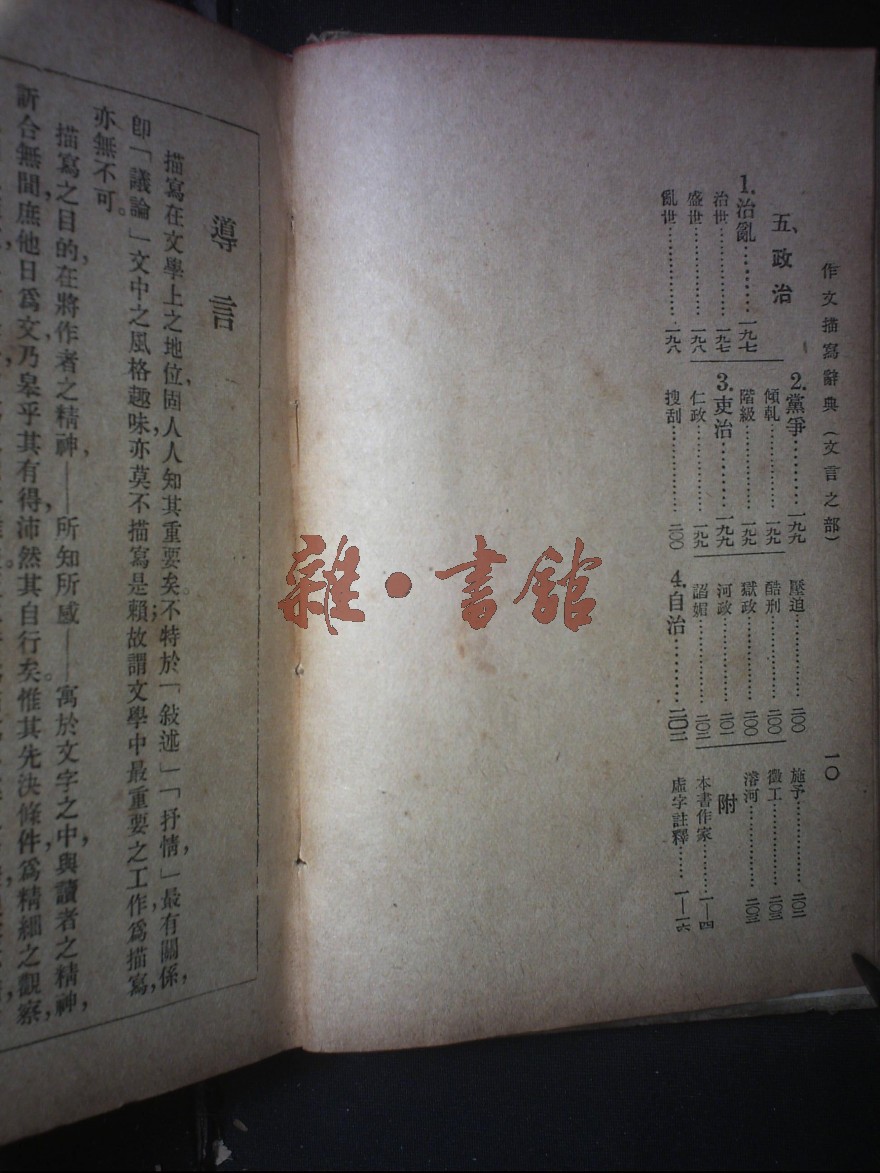 作文描寫辭典(文言之部)
一〇
五、政治
1.治亂………一九七
治世………一九七
盛世………一九八
亂世………一九八
2.黨爭………一九九
傾軋………一九九
階級………一九九
3.吏治………一九九
仁政………一九九
搜刮………二〇〇
壓迫………二〇〇
酷刑………二〇〇
獄政………二〇〇
河政………二〇一
諂媚………二〇二
4.自治………二〇二
施予………二〇二
徵工………二〇三
濬河………二〇三
附
本書作家………1—四
虛字註釋………1—一六
雜·書館
導言
描寫在文學上之地位,固人人知其重要矣。不特於「敍述」「抒情」最有關係,
卽「議論」文中之風格趣味,亦莫不描寫是賴;故謂文學中最重要之工作爲描寫,
亦無不可。
描寫之目的,在將作者之精神——所知所感——寓於文字之中,與讀者之精神,
訢合無間,庶他日爲文,乃臯乎其有得,沛然其自行矣。惟其先決條件,爲精細之觀察,